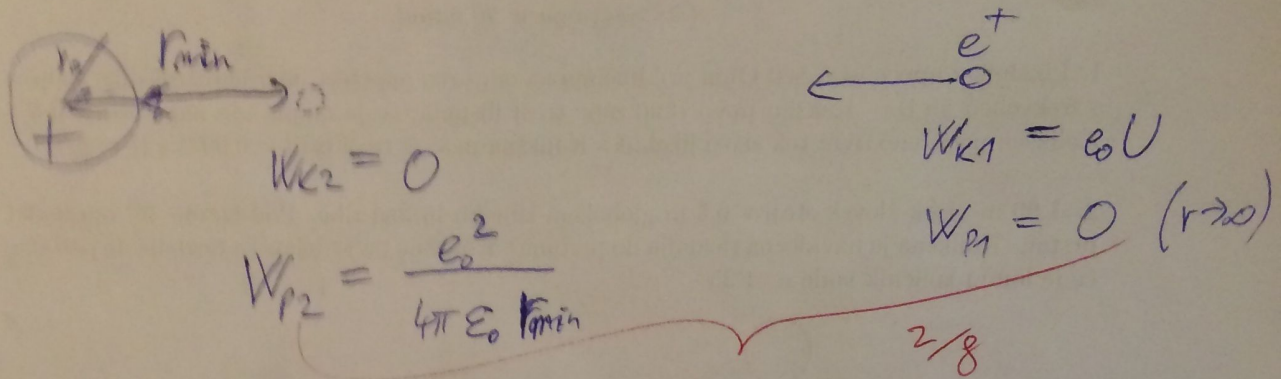 r₂ r_min
+
W_K2 = 0
W_P2 = e₀² / (4π ε₀ r_min)
e⁺
W_K1 = e₀U
W_P1 = 0 (r→∞)
2/8